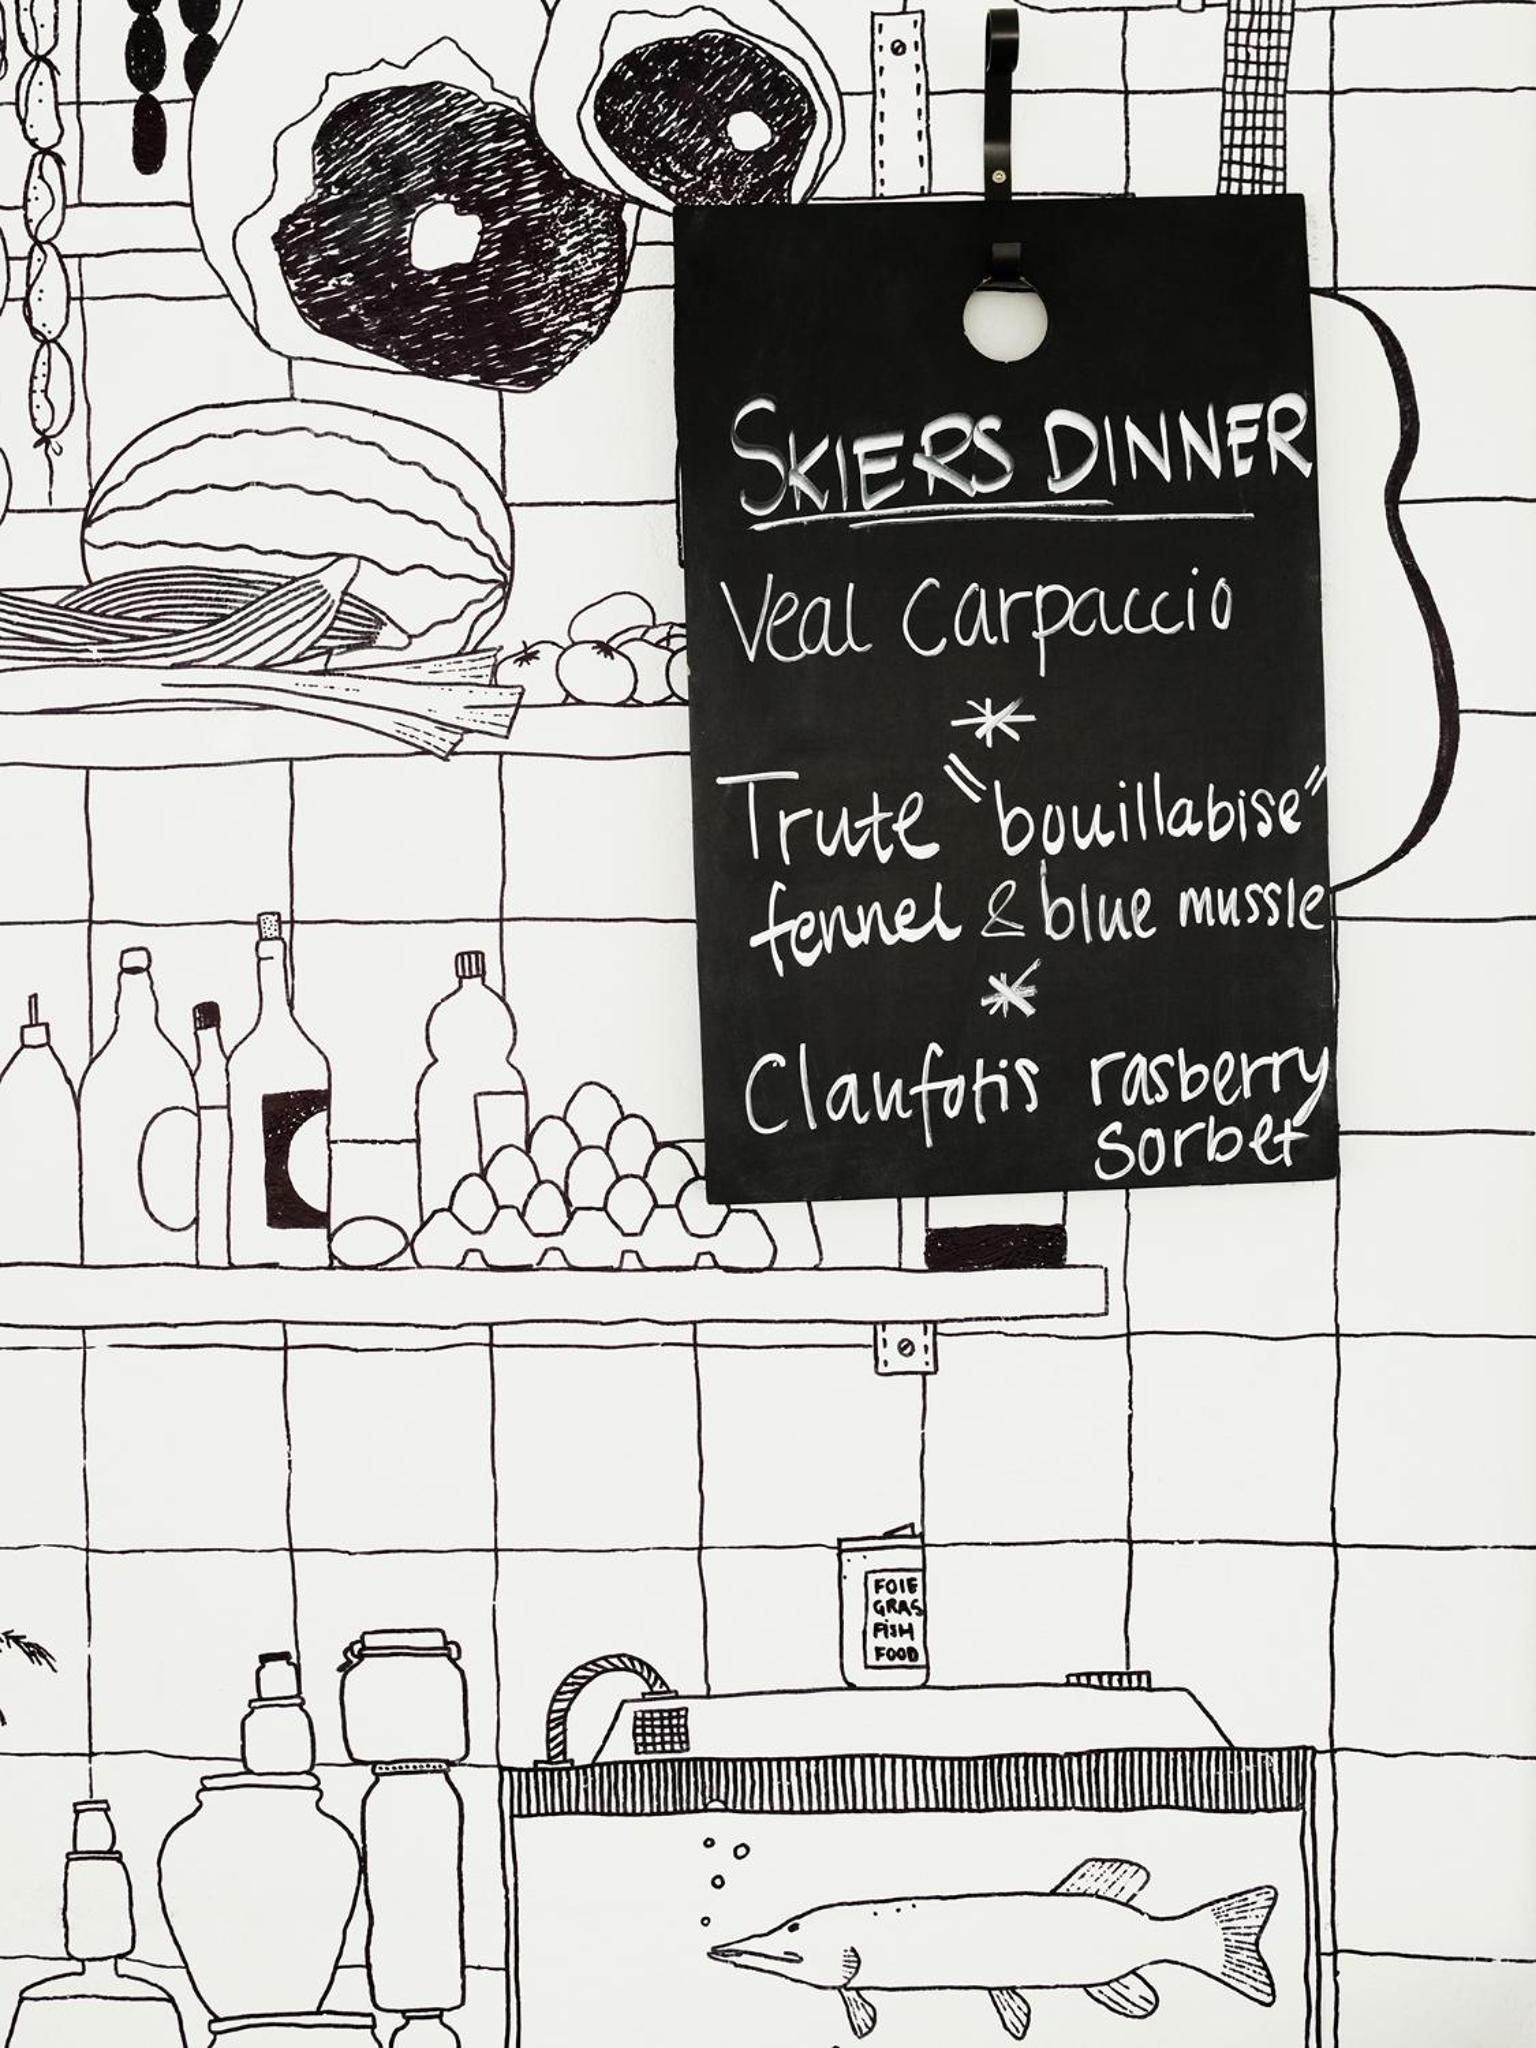 SKIERS DINNER
Veal Carpaccio
*
Trute "bouillabise"
fennel & blue mussle
*
Claufotis rasberry
sorbet
FOIE
GRAS
FISH
FOOD